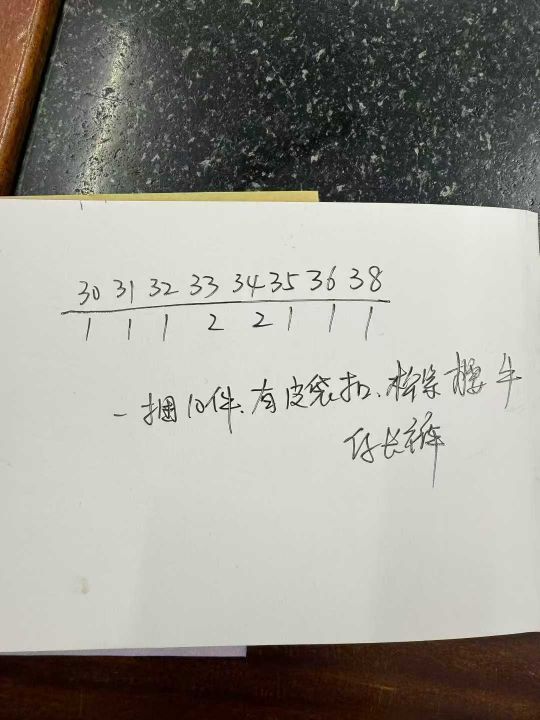 30 31 32 33 34 35 36 38
1 1 1 2 2 1 1 1
一捆10件、有皮袋扣、松紧腰牛
仔长裤